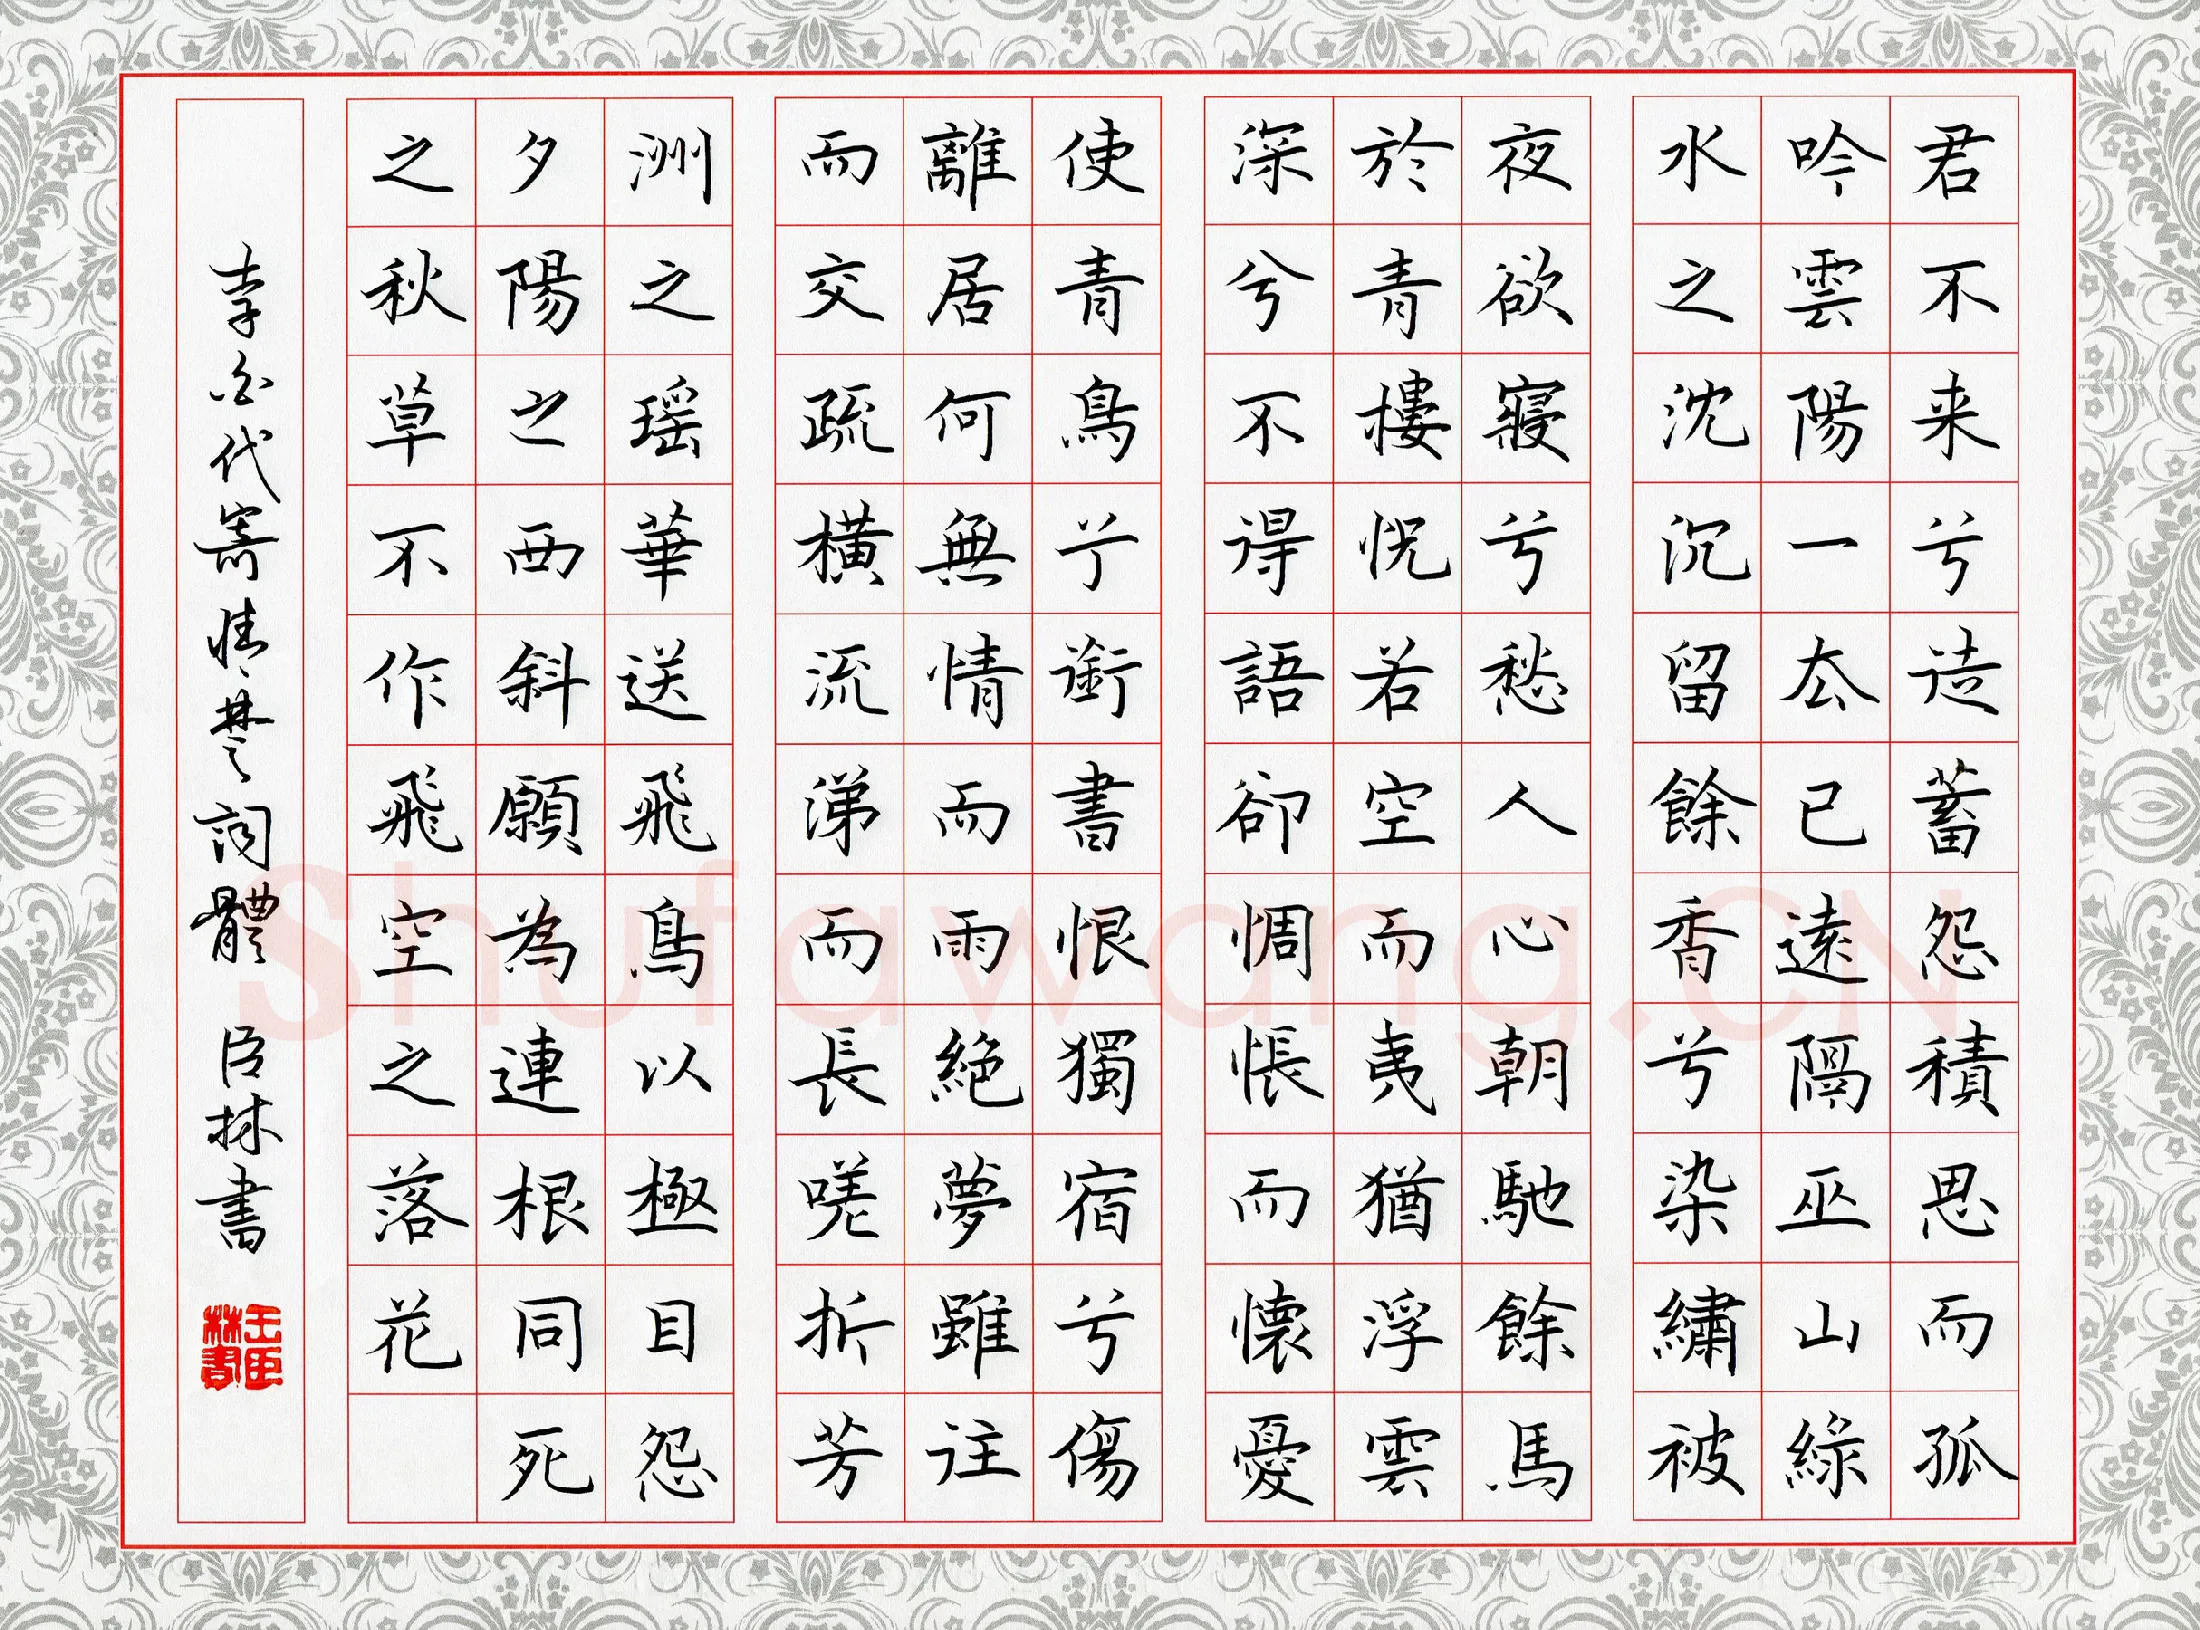 君不来兮徒蓄怨積思而孤
吟雲陽一去已遠隔巫山綠
水之沈沉留餘香兮染繡被
夜欲寢兮愁人心朝馳餘馬
於青樓恍若空而夷猶浮雲
深兮不得語卻惆悵而懷憂
使青鳥兮銜書恨獨宿兮傷
離居何無情而雨絕夢雖往
而交疏橫流涕而長嗟折芳
洲之瑶華送飛鳥以極目怨
夕陽之西斜願為連根同死
之秋草不作飛空之落花
李白代寄情楚詞體 臣林書
王臣林書
Shufawang.CN